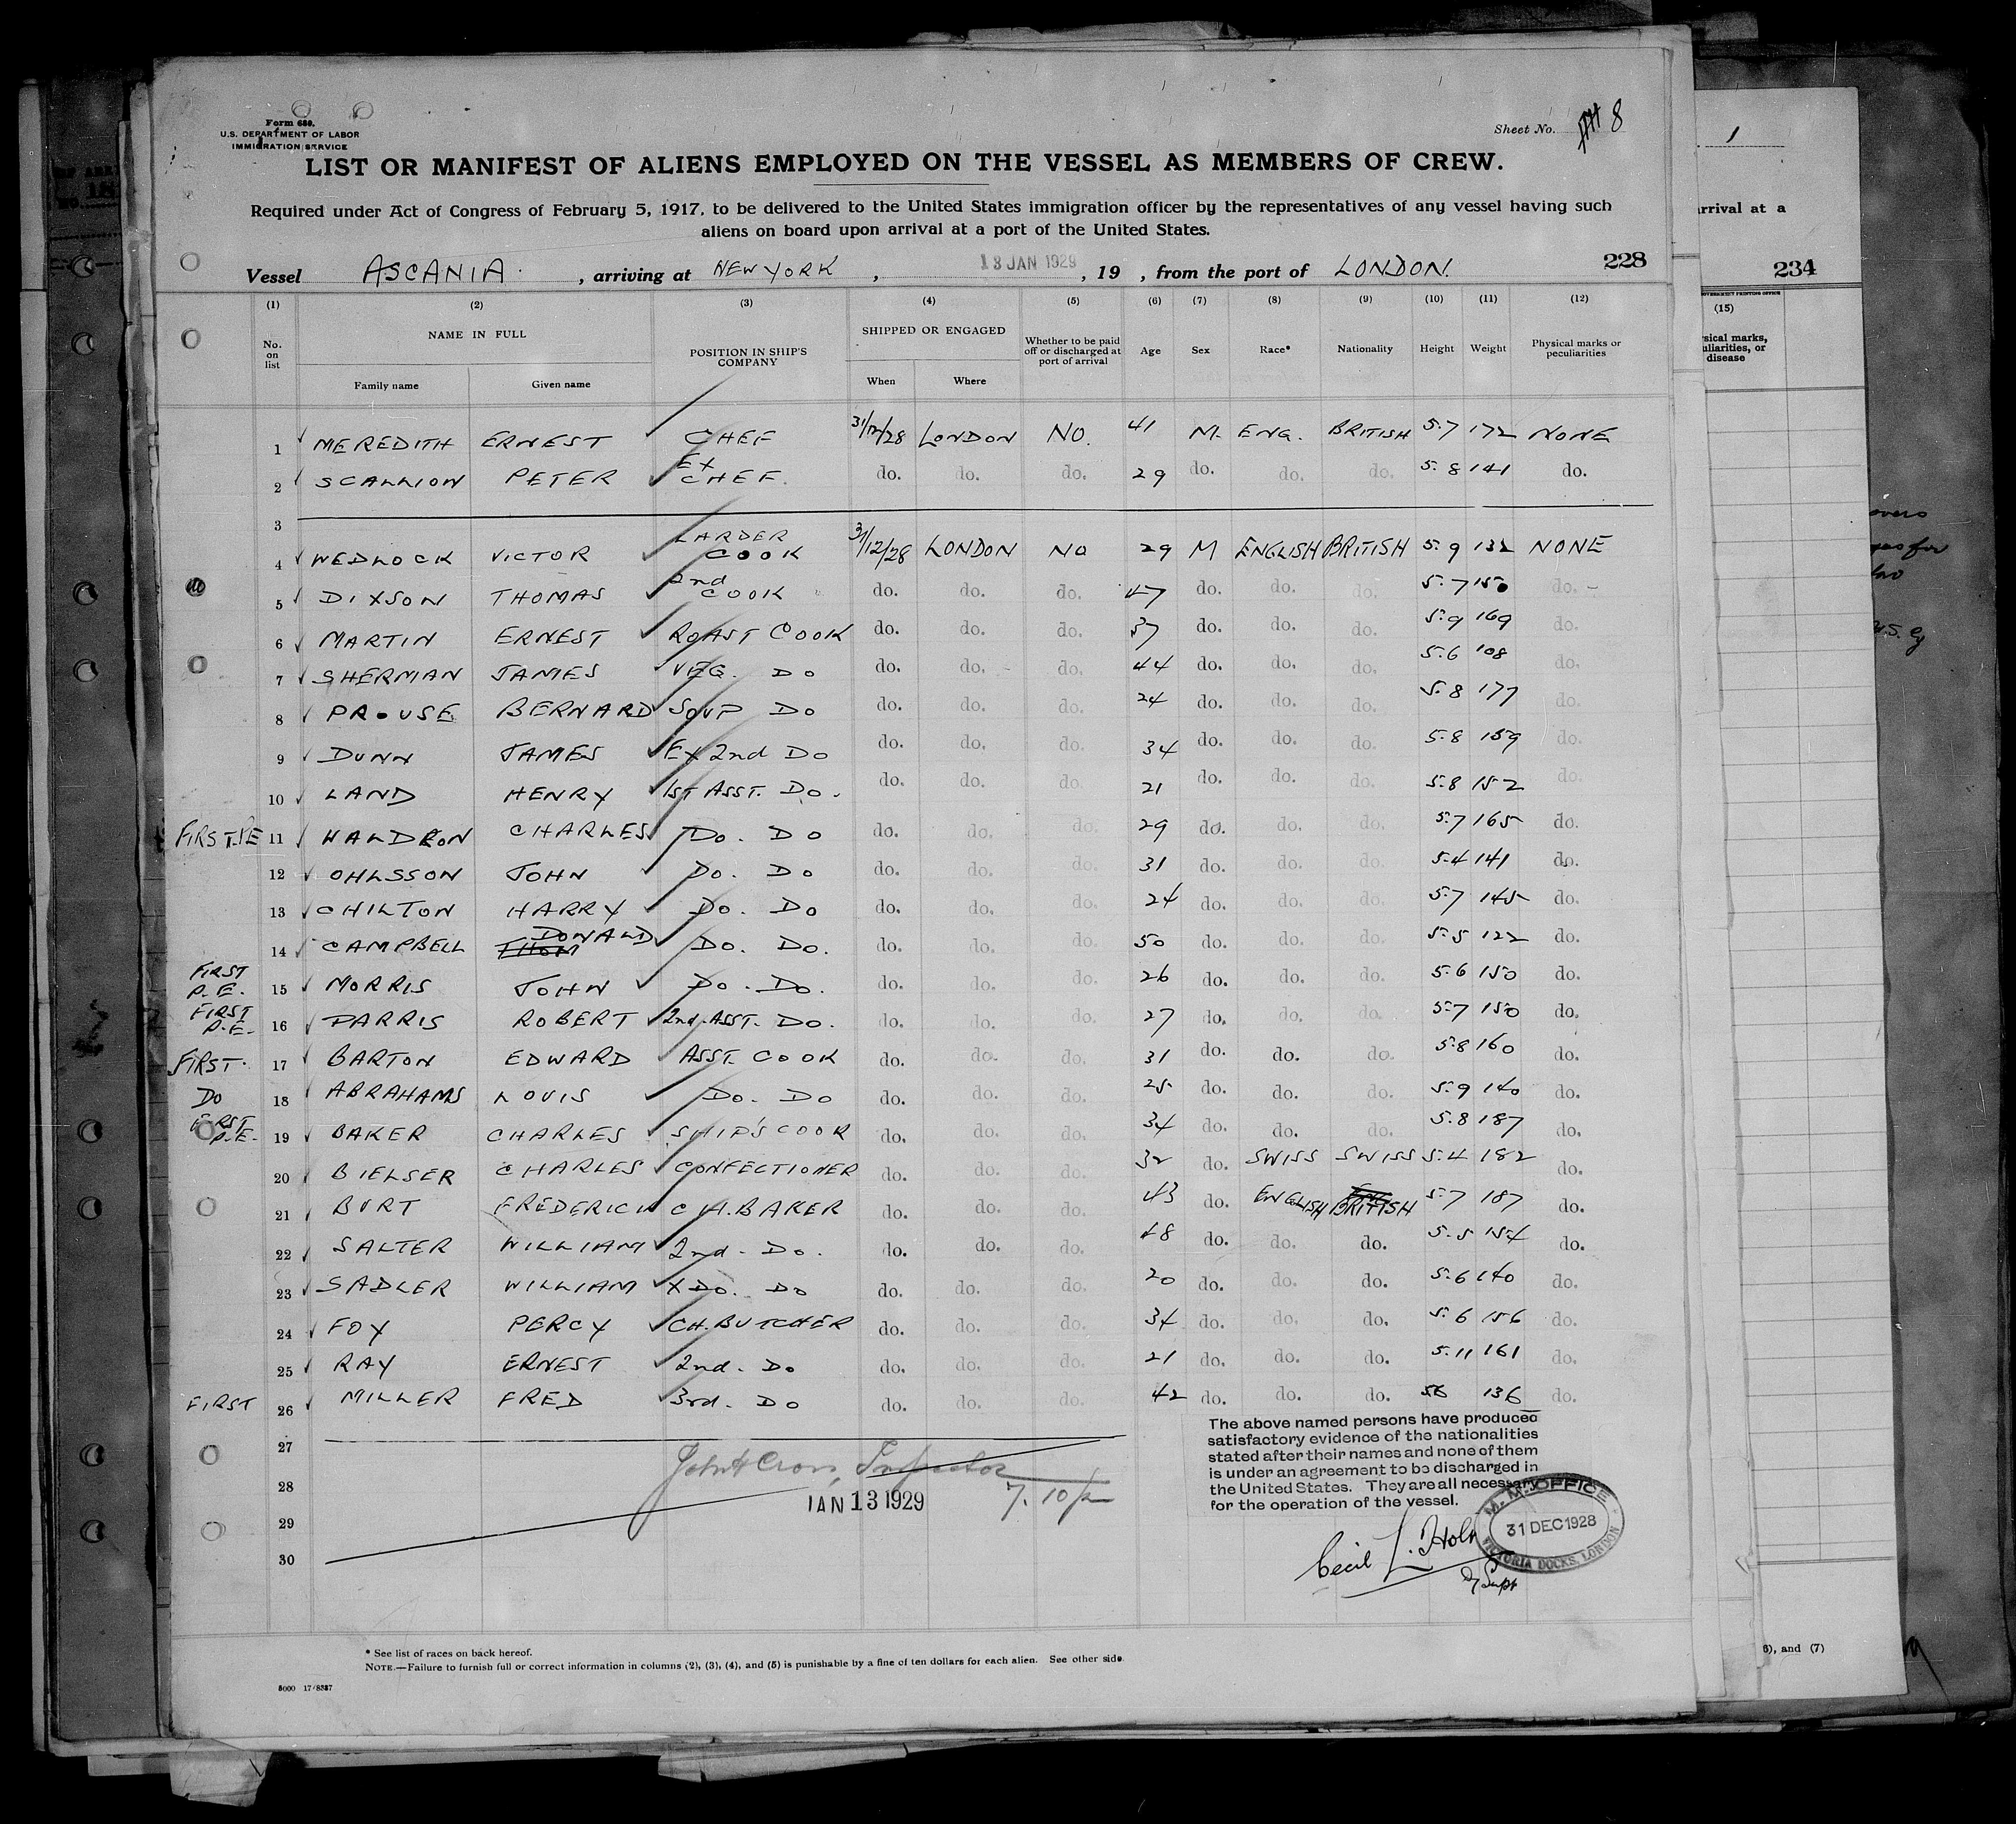 Form 680.
U.S. DEPARTMENT OF LABOR
IMMIGRATION SERVICE
Sheet No. 8
LIST OR MANIFEST OF ALIENS EMPLOYED ON THE VESSEL AS MEMBERS OF CREW.
Required under Act of Congress of February 5, 1917, to be delivered to the United States immigration officer by the representatives of any vessel having such
aliens on board upon arrival at a port of the United States.
228
Vessel ASCANIA. , arriving at NEW YORK , 13 JAN 1929 , 19 , from the port of LONDON.
(1) (2) (3) (4) (5) (6) (7) (8) (9) (10) (11) (12)
No. on list NAME IN FULL POSITION IN SHIP'S COMPANY SHIPPED OR ENGAGED Whether to be paid off or discharged at port of arrival Age Sex Race* Nationality Height Weight Physical marks or peculiarities
Family name Given name When Where
1 MEREDITH ERNEST CHEF 31/12/28 LONDON NO. 41 M. ENG. BRITISH 5.7 172 NONE
2 SCALLION PETER EX CHEF. do. do. do. 29 do. do. do. 5.8 141 do.
3
4 WEDLOCK VICTOR LARDER COOK 31/12/28 LONDON NO 29 M ENGLISH BRITISH 5.9 132 NONE
5 DIXSON THOMAS 2nd COOK do. do. do. 47 do. do. do. 5.7 150 do. -
6 MARTIN ERNEST ROAST COOK do. do. do. 37 do. do. do. 5.9 169 do.
7 SHERMAN JAMES VEG. DO do. do. do. 44 do. do. do. 5.6 108 do.
8 PROUSE BERNARD SOUP DO do. do. do. 24 do. do. do. 5.8 177 do.
9 DUNN JAMES EX 2nd DO do. do. do. 34 do. do. do. 5.8 159 do.
10 LAND HENRY 1ST ASST. DO. do. do. do. 21 do. do. do. 5.8 152 do.
FIRST P.E 11 WALDRON CHARLES DO. DO do. do. do. 29 do. do. do. 5.7 165 do.
12 OHLSSON JOHN DO. DO do. do. do. 31 do. do. do. 5.4 141 do.
13 CHILTON HARRY DO. DO do. do. do. 24 do. do. do. 5.7 145 do.
14 CAMPBELL THOM DONALD DO. DO. do. do. do. 50 do. do. do. 5.5 122 do.
FIRST P.E. 15 MORRIS JOHN DO. DO. do. do. do. 26 do. do. do. 5.6 150 do.
FIRST P.E. 16 PARRIS ROBERT 2nd ASST. DO. do. do. do. 27 do. do. do. 5.7 150 do.
FIRST. 17 BARTON EDWARD ASST. COOK do. do. do. 31 do. do. do. 5.8 160 do.
DO 18 ABRAHAMS LOUIS DO. DO do. do. do. 25 do. do. do. 5.9 140 do.
FIRST P.E. 19 BAKER CHARLES SHIP'S COOK do. do. do. 34 do. do. do. 5.8 187 do.
20 BIELSER CHARLES CONFECTIONER do. do. do. 32 do. SWISS SWISS 5.4 182 do.
21 BURT FREDERICK CH. BAKER do. do. do. 43 do. ENGLISH BRITISH 5.7 187 do.
22 SALTER WILLIAM 2nd. DO. do. do. do. 48 do. do. do. 5.5 154 do.
23 SADLER WILLIAM X DO. DO do. do. do. 20 do. do. do. 5.6 140 do.
24 FOY PERCY CH. BUTCHER do. do. do. 34 do. do. do. 5.6 156 do.
25 RAY ERNEST 2nd. DO do. do. do. 21 do. do. do. 5.11 161 do.
FIRST 26 MILLER FRED 3rd. DO do. do. do. 42 do. do. do. 56 136 do.
27
28
29
30
John H Cron, Inspector
JAN 13 1929
The above named persons have produced
satisfactory evidence of the nationalities
stated after their names and none of them
is under an agreement to be discharged in
the United States. They are all necessary
for the operation of the vessel.
M. M. OFFICE
31 DEC 1928
VICTORIA DOCKS, LONDON
Cecil L. Holt
Dy Supt
* See list of races on back hereof.
NOTE.—Failure to furnish full or correct information in columns (2), (3), (4), and (5) is punishable by a fine of ten dollars for each alien. See other side.
5000 17/8337
1
arrival at a
234
GOVERNMENT PRINTING OFFICE
(15)
sical marks,
uliarities, or
disease
6), and (7)